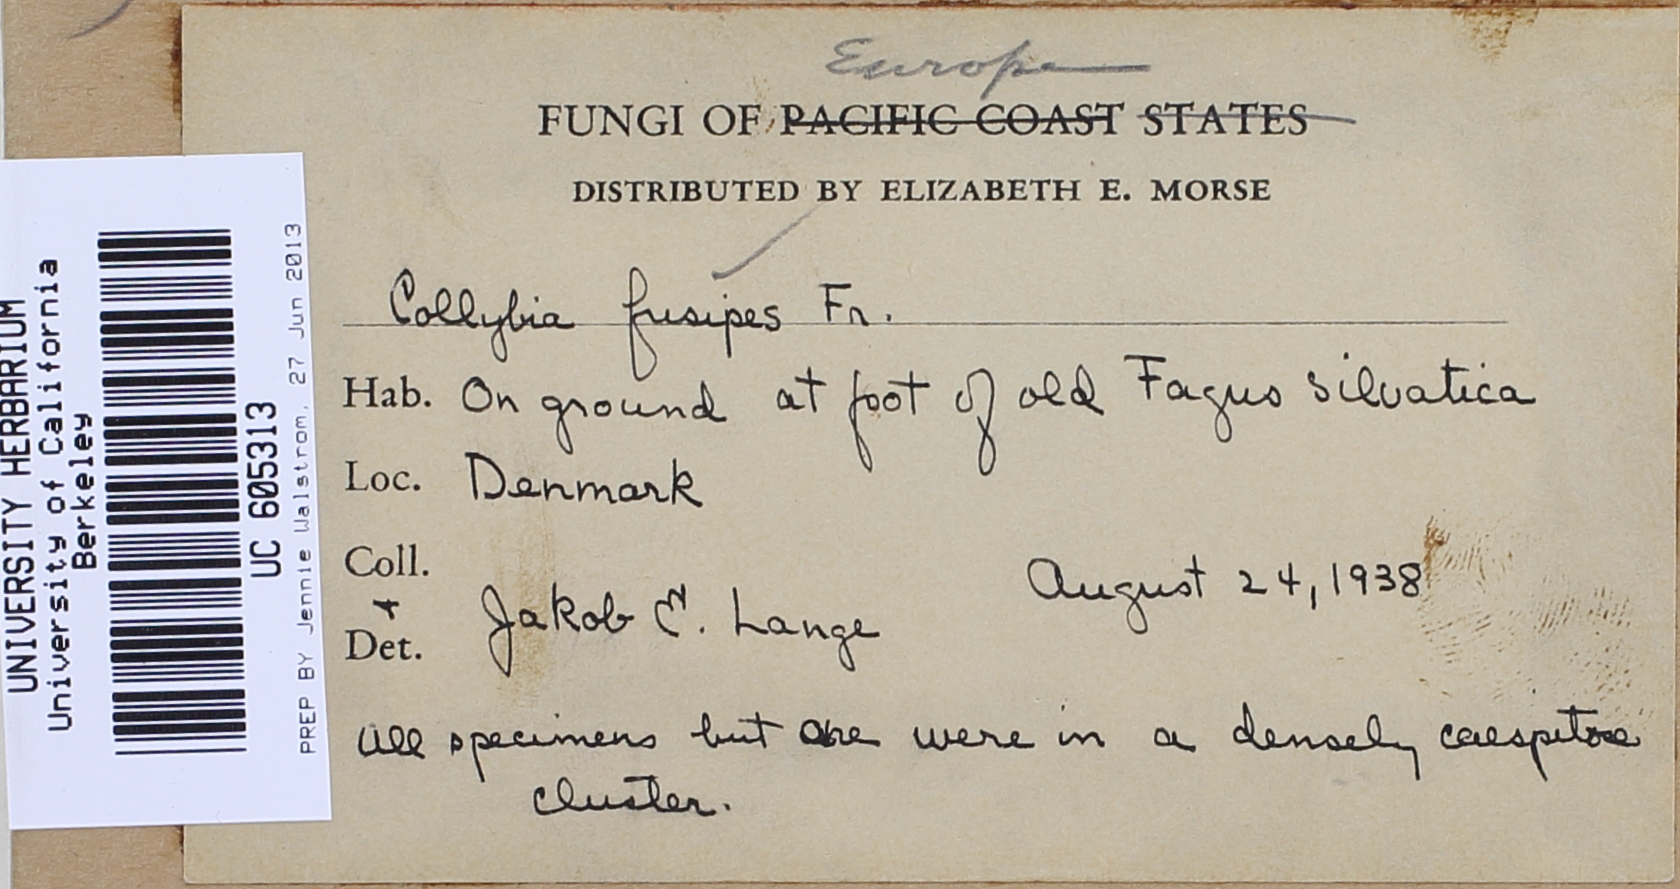 Europe
FUNGI OF PACIFIC COAST STATES
DISTRIBUTED BY ELIZABETH E. MORSE
Collybia fusipes Fr.
Hab. On ground at foot of old Fagus silvatica
Loc. Denmark
Coll.
+
Det. Jakob E. Lange August 24, 1938
All specimens but one were in a densely caespitose
cluster.
UNIVERSITY HERBARIUM
University of California
Berkeley
UC 605313
PREP BY Jennie Walstrom, 27 Jun 2013